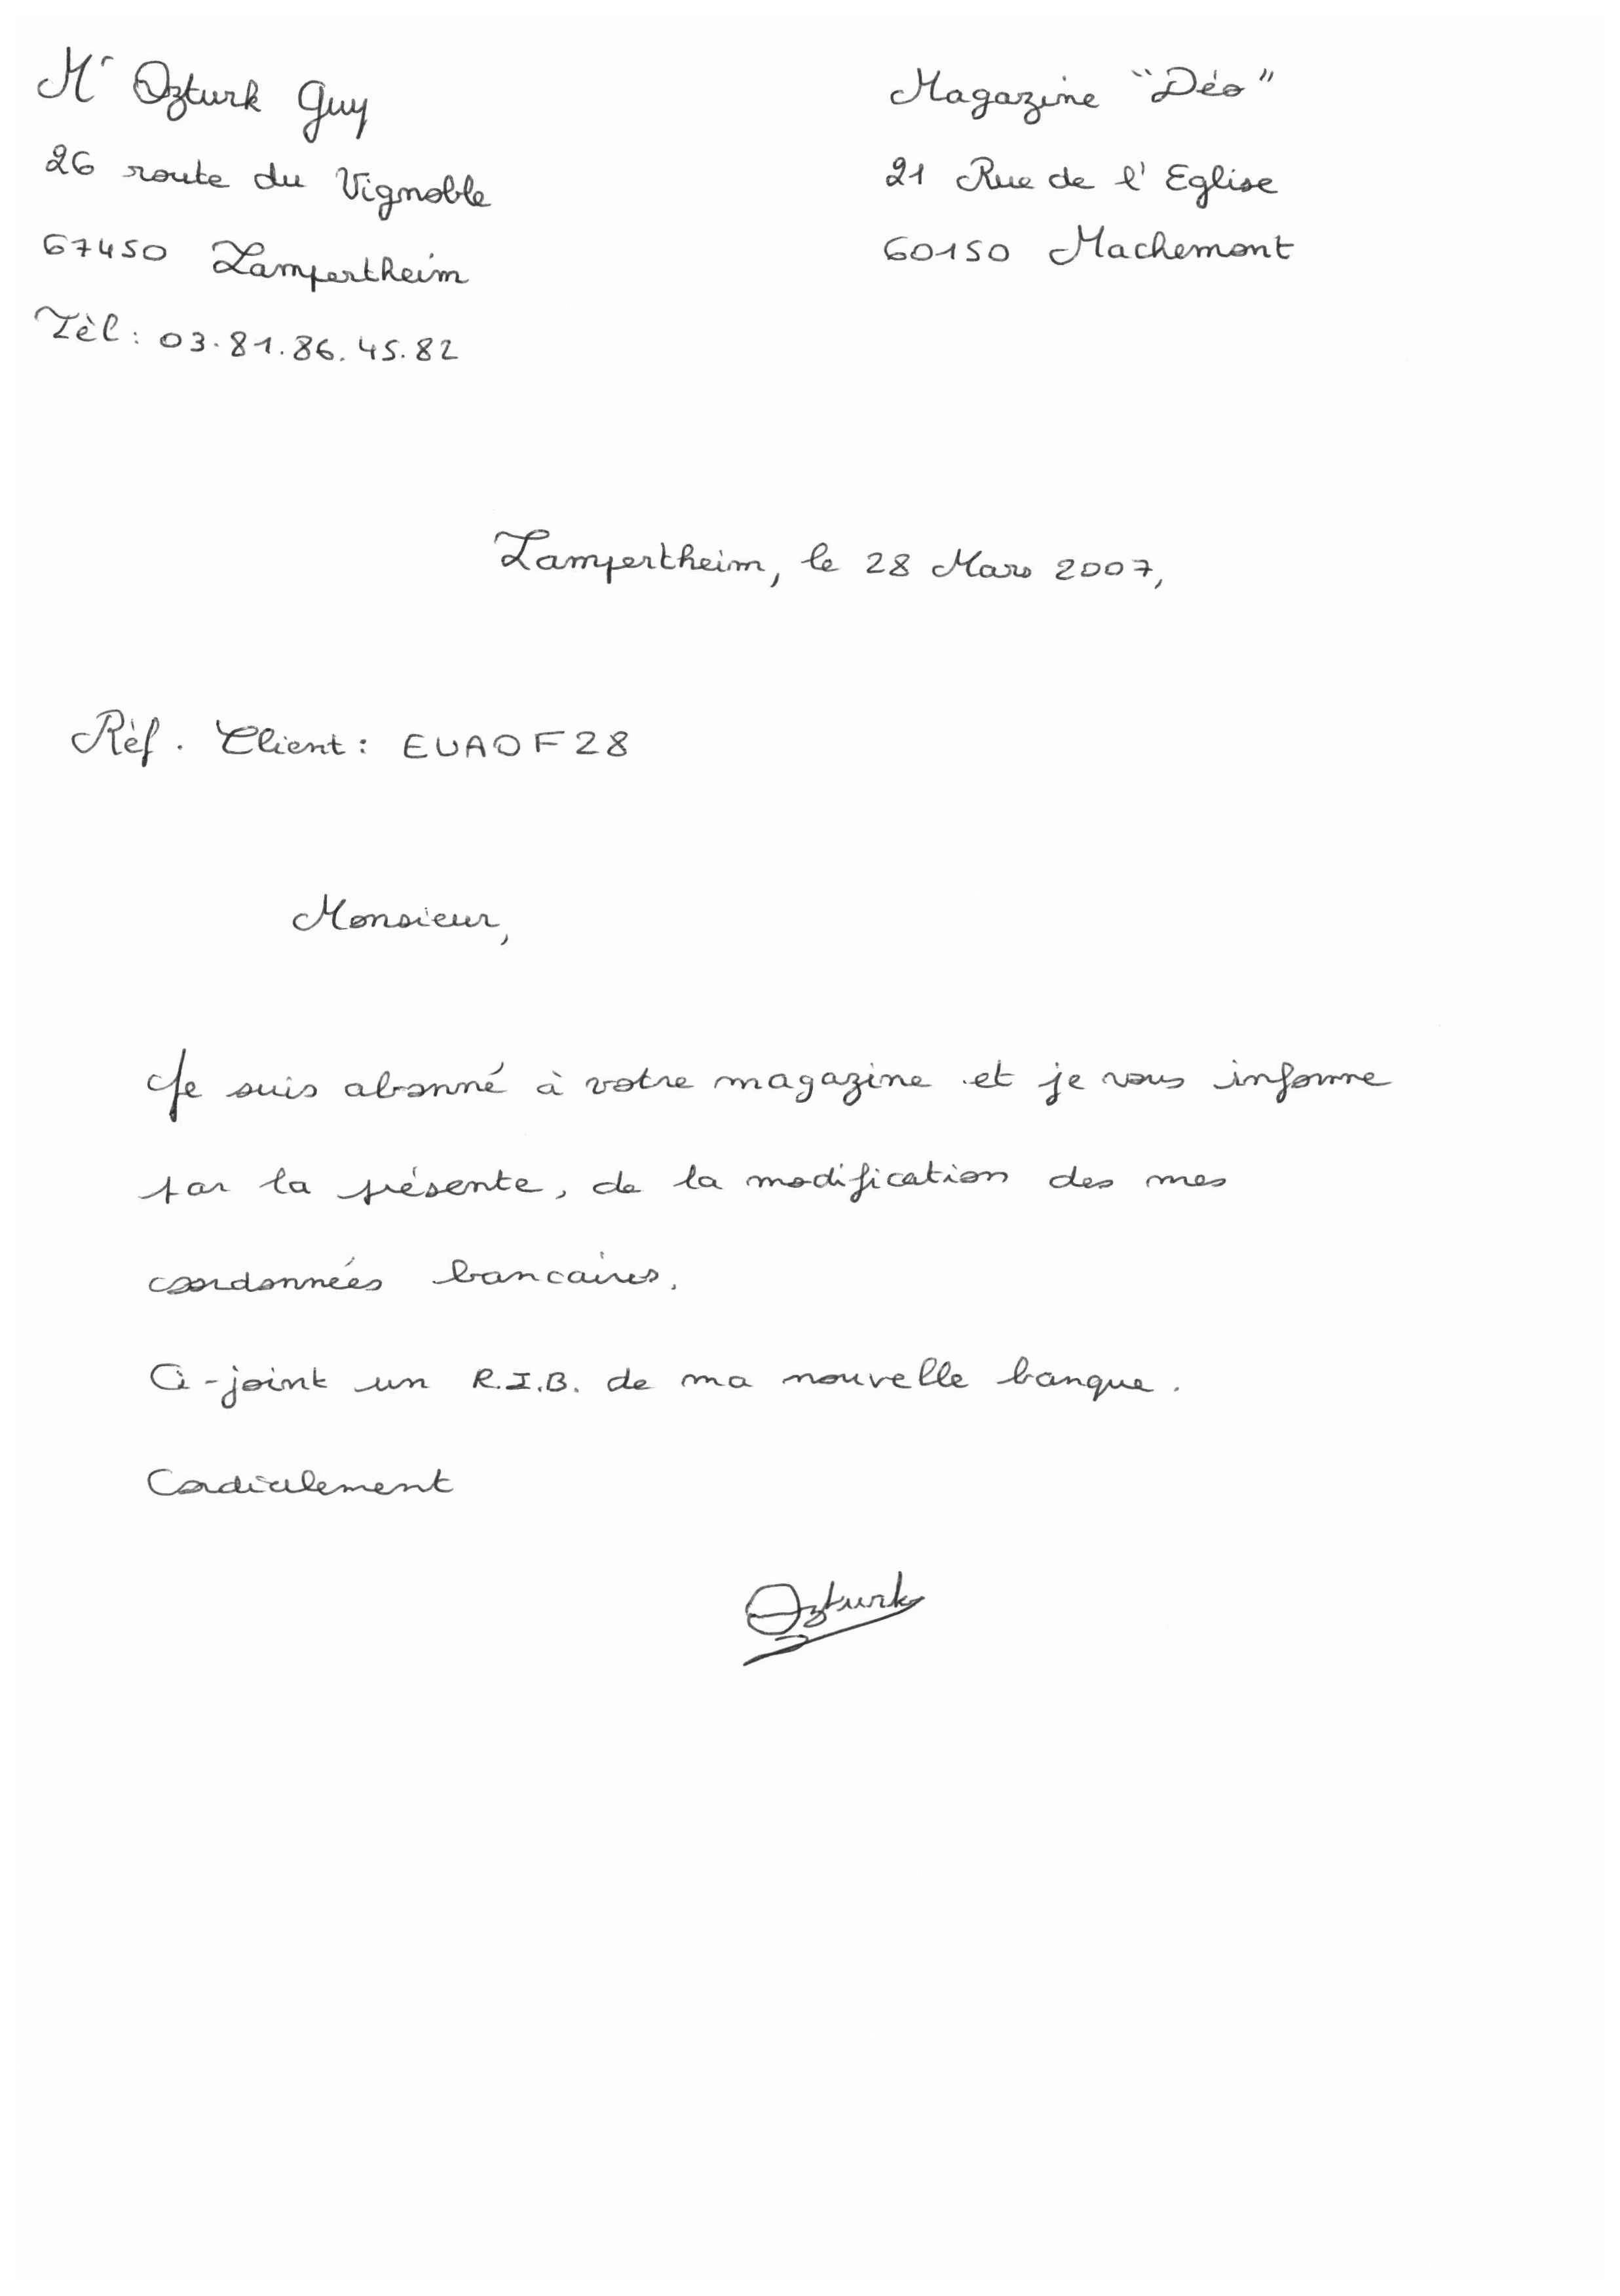 Mr Ozturk Guy
26 route du Vignoble
67450 Lampertheim
Tèl : 03.81.86.45.82
Magazine "Déo"
21 Rue de l'Eglise
60150 Machemont
Lampertheim, le 28 Mars 2007,
Rèf. Client : EUAOF28
Monsieur,
Je suis abonné à votre magazine et je vous informe
par la présente, de la modification des mes
coordonnées bancaires.
Ci-joint un R.I.B. de ma nouvelle banque.
Cordialement
Ozturk